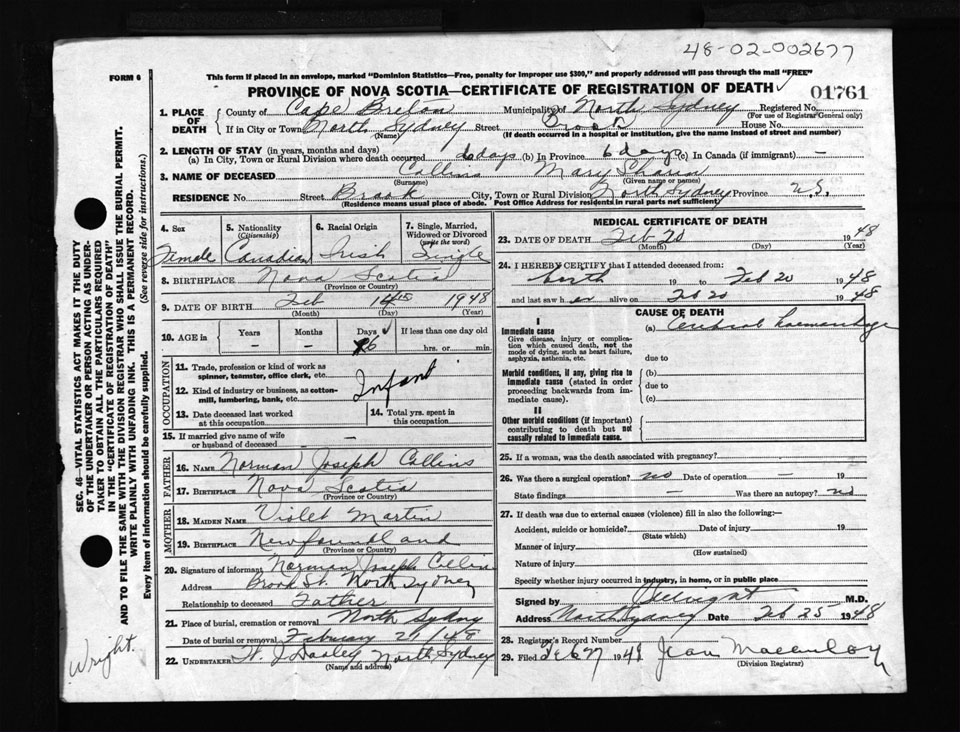 48-02-002677
FORM 6
This form if placed in an envelope, marked "Dominion Statistics—Free, penalty for improper use $300," and properly addressed will pass through the mail "FREE"
PROVINCE OF NOVA SCOTIA—CERTIFICATE OF REGISTRATION OF DEATH
01761
1. PLACE OF DEATH
County of Cape Breton Municipality of North Sydney Registered No.
(For use of Registrar General only)
If in City or Town North Sydney Street Brook House No.
(Name) (If death occurred in a hospital or institution, give the name instead of street and number)
2. LENGTH OF STAY (in years, months and days)
(a) In City, Town or Rural Division where death occurred 6 days (b) In Province 6 days (c) In Canada (if immigrant) —
3. NAME OF DECEASED Collins Mary
(Surname) (Given name or names)
RESIDENCE No. Street Brook City, Town or Rural Division North Sydney Province N.S.
(Residence means usual place of abode. Post Office Address for residents in rural parts not sufficient)
4. Sex 5. Nationality (Citizenship) 6. Racial Origin 7. Single, Married, Widowed or Divorced (write the word)
Female Canadian Irish Single
8. BIRTHPLACE Nova Scotia
(Province or Country)
9. DATE OF BIRTH Feb 14 1948
(Month) (Day) (Year)
10. AGE in Years Months Days If less than one day old
— — 6 hrs. or min.
OCCUPATION
11. Trade, profession or kind of work as spinner, teamster, office clerk, etc.
12. Kind of industry or business, as cotton-mill, lumbering, bank, etc.
Infant
13. Date deceased last worked at this occupation
14. Total yrs. spent in this occupation
15. If married give name of wife or husband of deceased —
FATHER
16. NAME Norman Joseph Collins
17. BIRTHPLACE Nova Scotia
(Province or Country)
MOTHER
18. MAIDEN NAME Violet Martin
19. BIRTHPLACE Newfoundland
(Province or Country)
20. Signature of informant Norman Joseph Collins
Address Brook St. North Sydney
Relationship to deceased Father
21. Place of burial, cremation or removal North Sydney
Date of burial or removal February 21/48
22. UNDERTAKER North Sydney
(Name and address)
MEDICAL CERTIFICATE OF DEATH
23. DATE OF DEATH Feb 20 1948
(Month) (Day) (Year)
24. I HEREBY CERTIFY that I attended deceased from:
birth 19 to Feb 20 1948
and last saw her alive on Feb 20 1948
CAUSE OF DEATH
I
Immediate cause
Give disease, injury or complication which caused death, not the mode of dying, such as heart failure, asphyxia, asthenia, etc.
(a) Cerebral haemorrhage
due to
Morbid conditions, if any, giving rise to immediate cause (stated in order proceeding backwards from immediate cause).
(b)
due to
(c)
II
Other morbid conditions (if important) contributing to death but not causally related to immediate cause.
25. If a woman, was the death associated with pregnancy?
26. Was there a surgical operation? no Date of operation — 19
State findings — Was there an autopsy? no
27. If death was due to external causes (violence) fill in also the following:—
Accident, suicide or homicide? Date of injury 19
(State which)
Manner of injury
(How sustained)
Nature of injury
Specify whether injury occurred in industry, in home, or in public place
Signed by M.D.
Address North Sydney Date Feb 25 1948
28. Registrar's Record Number
29. Filed Feb 27 1948 Jean
(Division Registrar)
SEC. 46—VITAL STATISTICS ACT MAKES IT THE DUTY
OF THE UNDERTAKER OR PERSON ACTING AS UNDER-
TAKER TO OBTAIN ALL THE PARTICULARS REQUIRED
IN THE "CERTIFICATE OF REGISTRATION OF DEATH"
AND TO FILE THE SAME WITH THE DIVISION REGISTRAR WHO SHALL ISSUE THE BURIAL PERMIT.
WRITE PLAINLY WITH UNFADING INK. THIS IS A PERMANENT RECORD.
Every item of information should be carefully supplied. (See reverse side for instructions.)
Wright.